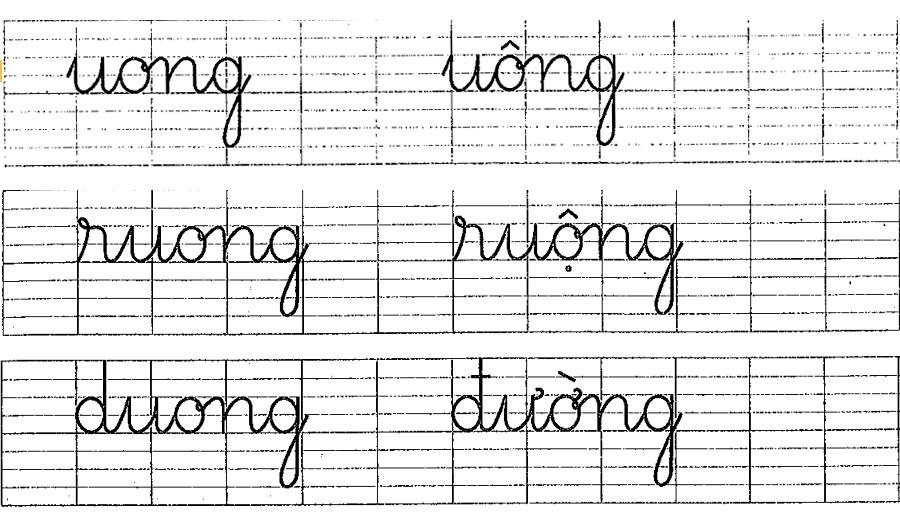 uong uông
ruong ruộng
duong đường